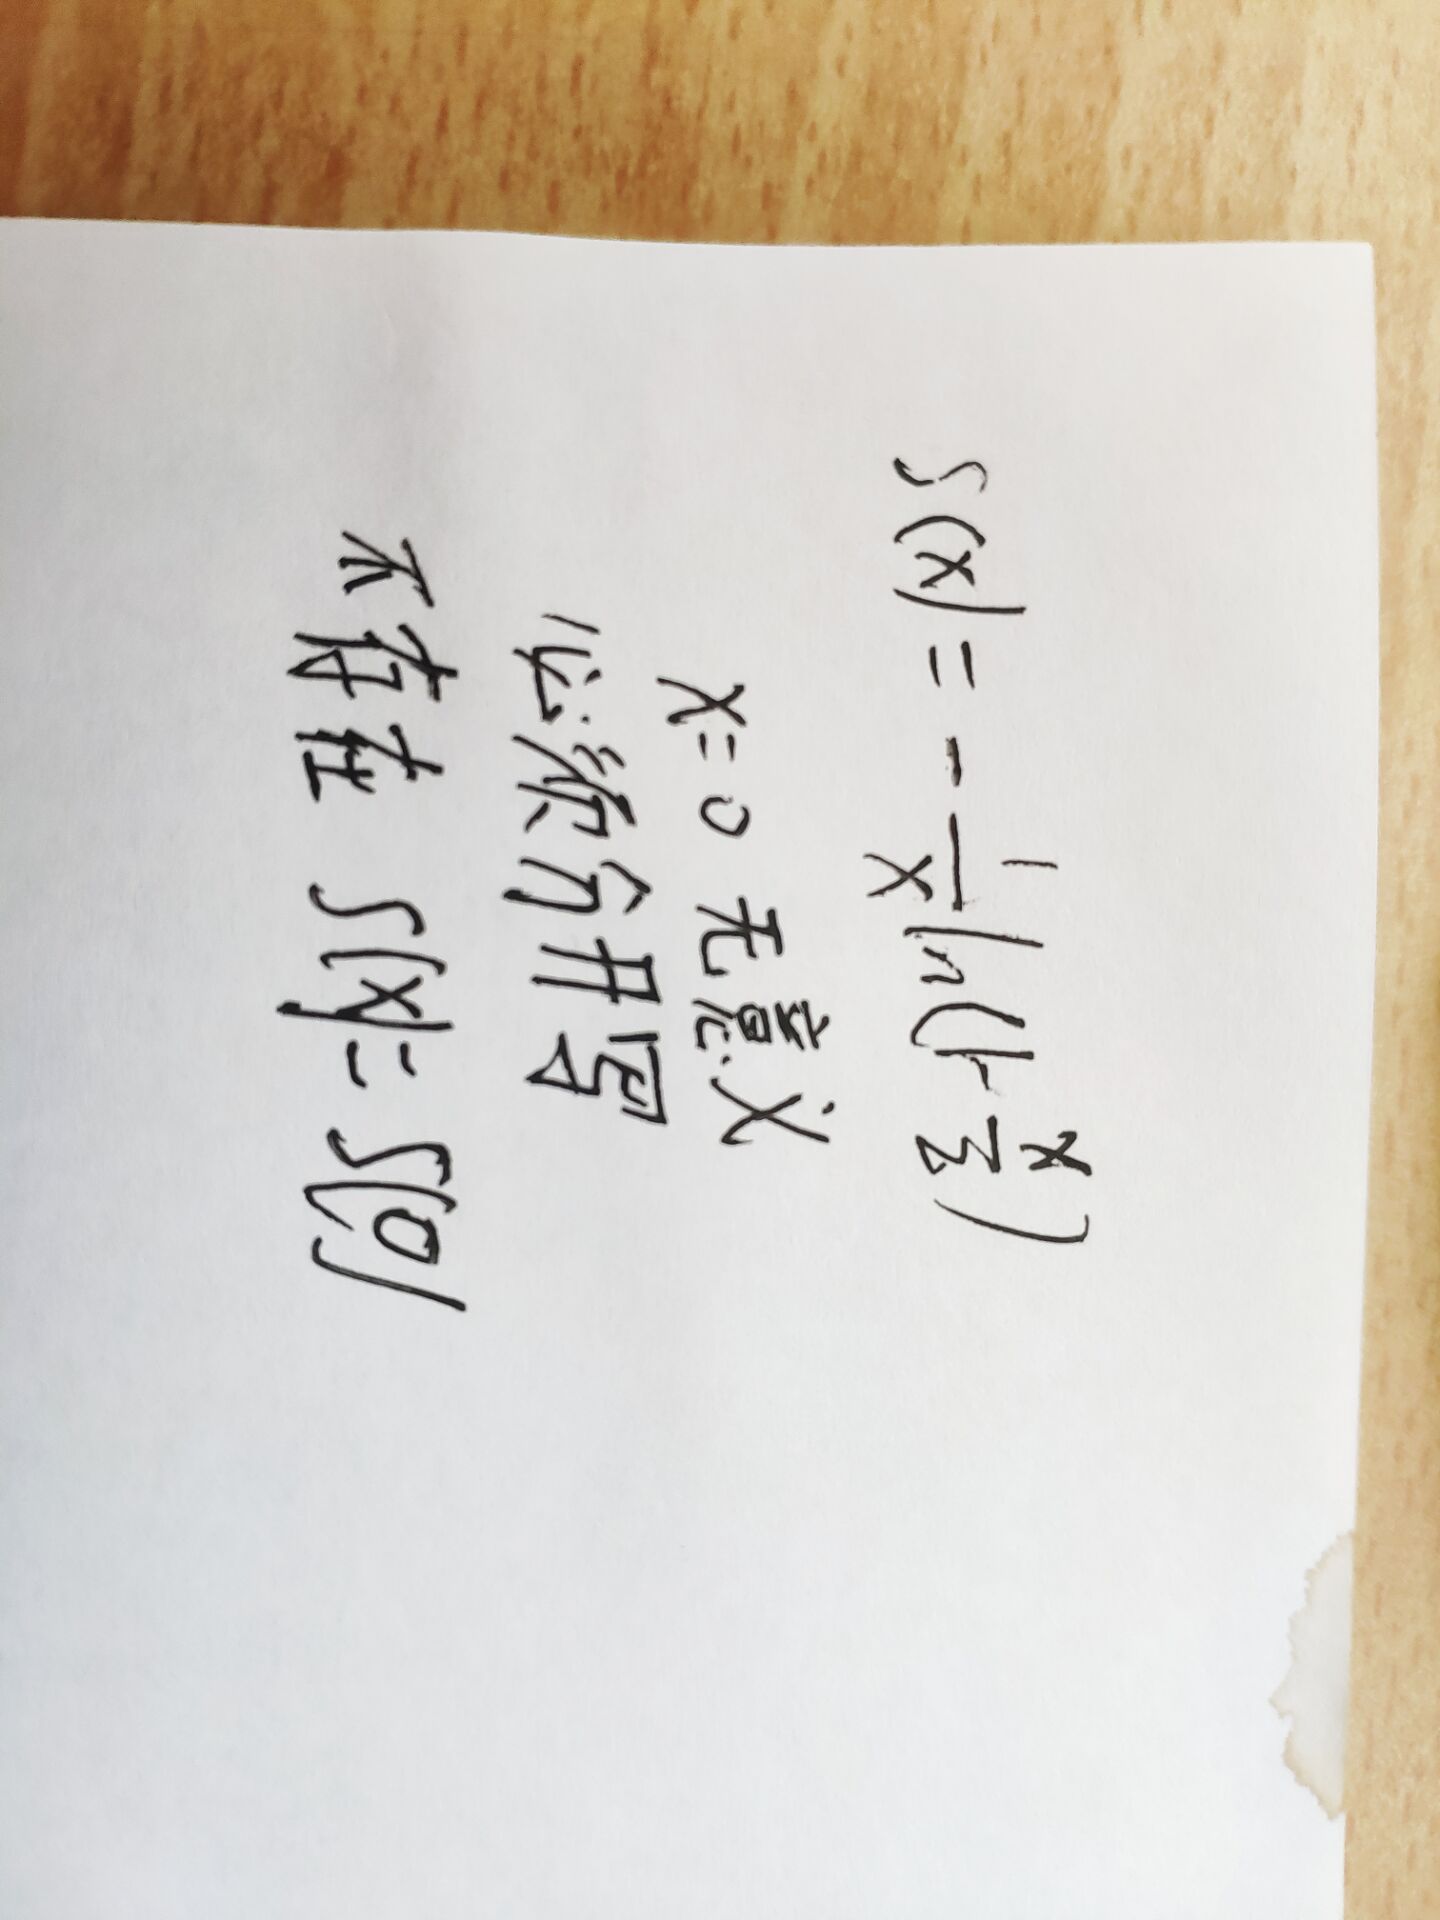 S(x) = - 1/x ln(1 - x/3)
x=0 无意义
必须分开写
不存在 S(x)= S(0)